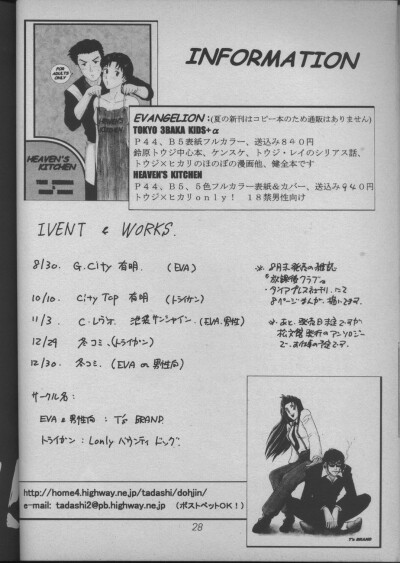 INFORMATION
FOR ADULTS ONLY
HEAVEN'S KITCHEN
EVANGELION；(夏の新刊はコピー本のため通販はありません)
TOKYO 3BAKA KIDS+α
P44、B5表紙フルカラー、送込み840円
鈴原トウジ中心本、ケンスケ、トウジ・レイのシリアス話、
トウジ×ヒカリのほのぼの漫画他、健全本です
HEAVEN'S KITCHEN
P44、B5、5色フルカラー表紙＆カバー、送込み940円
トウジ×ヒカリonly！ 18禁男性向け
IVENT & WORKS.
8/30. G.City 有明. (EVA)
10/10. City Top 有明 (トライガン)
11/3 C.レヴォ. 池袋サンシャイン (EVA.男性)
12/29 冬コミ、(トライガン)
12/30. 冬コミ. (EVA or 男性向)
※ 8月末発売の雑誌
8ページまんが、描いてます。
※ あと、発売日未定ですが、
アンソロジー
で、お仕事の予定です。
サークル名：
EVA & 男性向 : T's BRAND.
トライガン : Lonly バウンティ ドッグ
http://home4.highway.ne.jp/tadashi/dohjin/
e-mail: tadashi2@pb.highway.ne.jp （ポストペットOK！）
T's BRAND
28